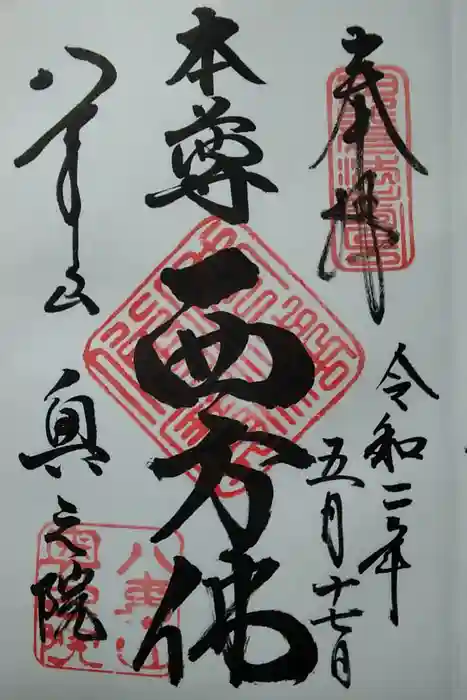 奉拝
令和二年
五月十七日
本尊
西方佛
八事山
奥之院
八事山
奥之院